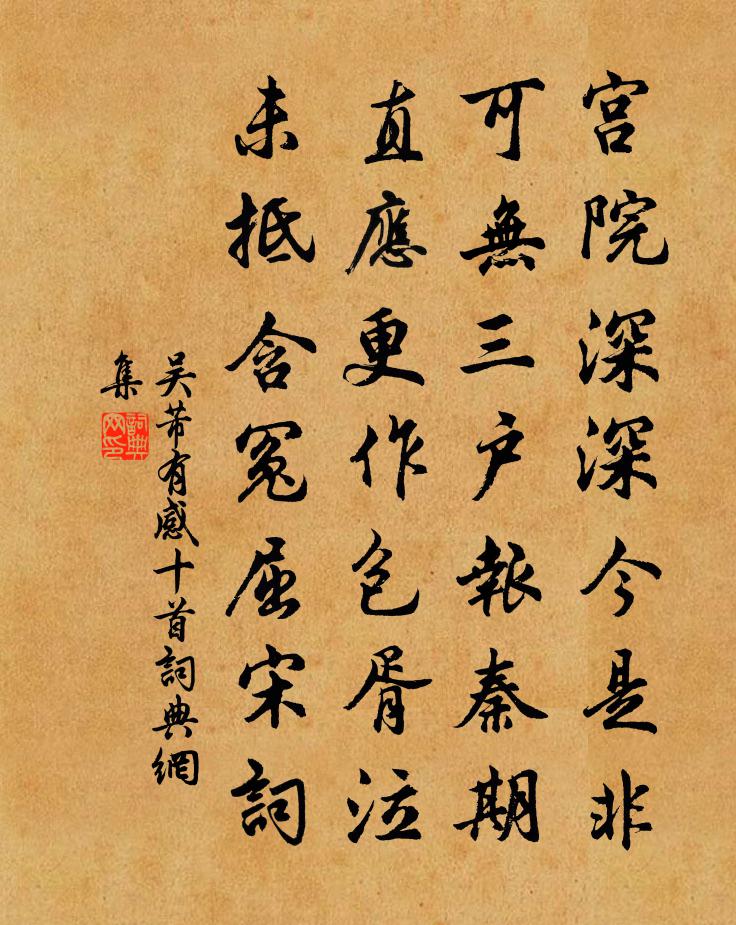 宫院深深今是非
可無三户報秦期
直應更作包胥泣
未抵含冤屈宋詞
吴芾有感十首詞典網
集
詞典
网印